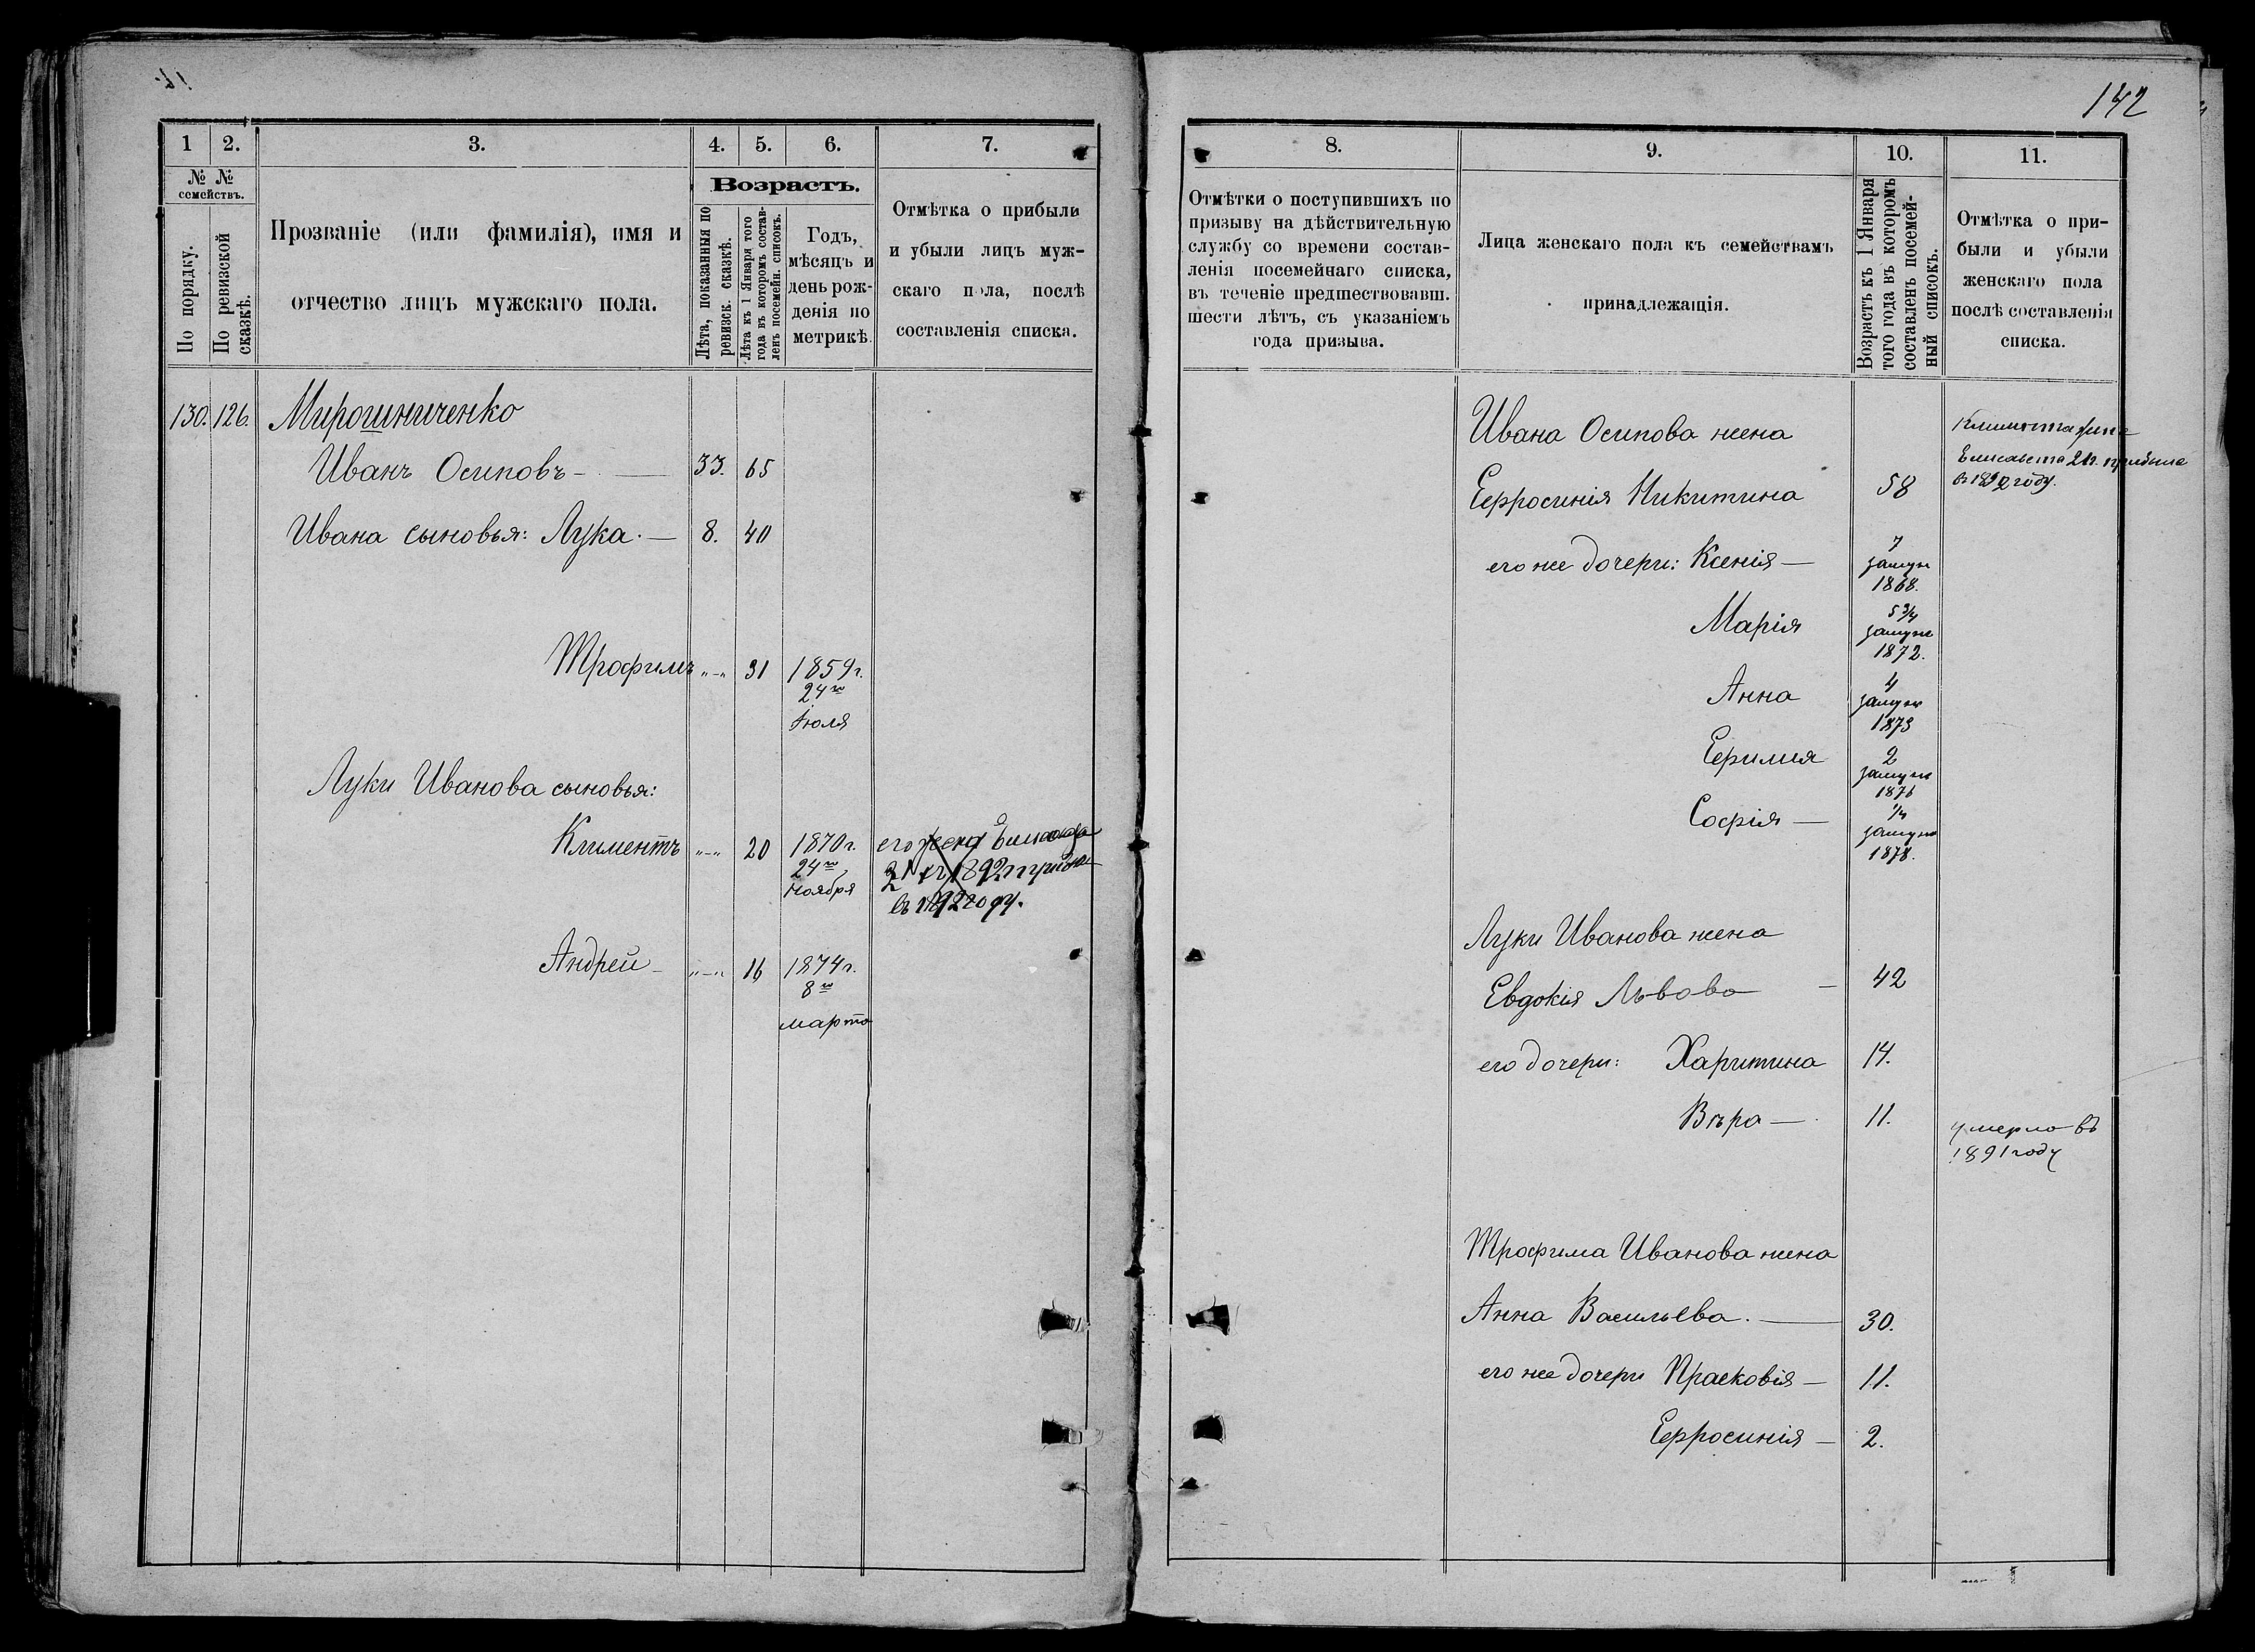 142
1 2. 3. 4. 5. 6. 7.
№ №
семействъ.
По порядку.
По ревизской
сказкѣ.
Прозваніе (или фамилія), имя и
отчество лицъ мужскаго пола.
Возрастъ.
Лѣта, показанныя по
ревизск. сказкѣ.
Лѣта къ 1 Января того
года въ которомъ состав-
ленъ посемейн. списокъ.
Годъ,
мѣсяцъ и
день рож-
денія по
метрикѣ.
Отмѣтка о прибыли
и убыли лицъ муж-
скаго пола, послѣ
составленія списка.
130. 126. Мирошниченко
Иванъ Осиповъ — 33. 65
Ивана сыновья: Лука. — 8. 40
Трофимъ „—„ 31 1859 г.
24го
Іюля
Луки Иванова сыновья:
Климентъ „—„ 20 1870 г.
24го
Ноября
его жена
въ 1892 году.
Андрей — „—„ 16 1874 г.
8го
марта
8. 9. 10. 11.
Отмѣтки о поступившихъ по
призыву на дѣйствительную
службу со времени состав-
ленія посемейнаго списка,
въ теченіе предшествовавш.
шести лѣтъ, съ указаніемъ
года призыва.
Лица женскаго пола къ семействамъ
принадлежащія.
Возрастъ къ 1 Января
того года въ которомъ
составленъ посемей-
ный списокъ.
Отмѣтка о при-
были и убыли
женскаго пола
послѣ составленія
списка.
Ивана Осипова жена
Ефросинія Никитина 58
Климента жена
Елисавета 21 г. прибыла
въ 1892 году.
его же дочери: Ксенія — 7
замуж
1868.
Марія 5 3/4
замуж
1872.
Анна 4
замуж
1873
Ефимия 2
замуж
1876
Софія — 1/4
замуж
1878.
Луки Иванова жена
Евдокія Львова — 42
его дочери: Харитина 14.
Вѣра — 11.
умерла въ
1891 году
Трофима Иванова жена
Анна Васильева. — 30.
его же дочери Прасковія — 11.
Ефросинія — 2.